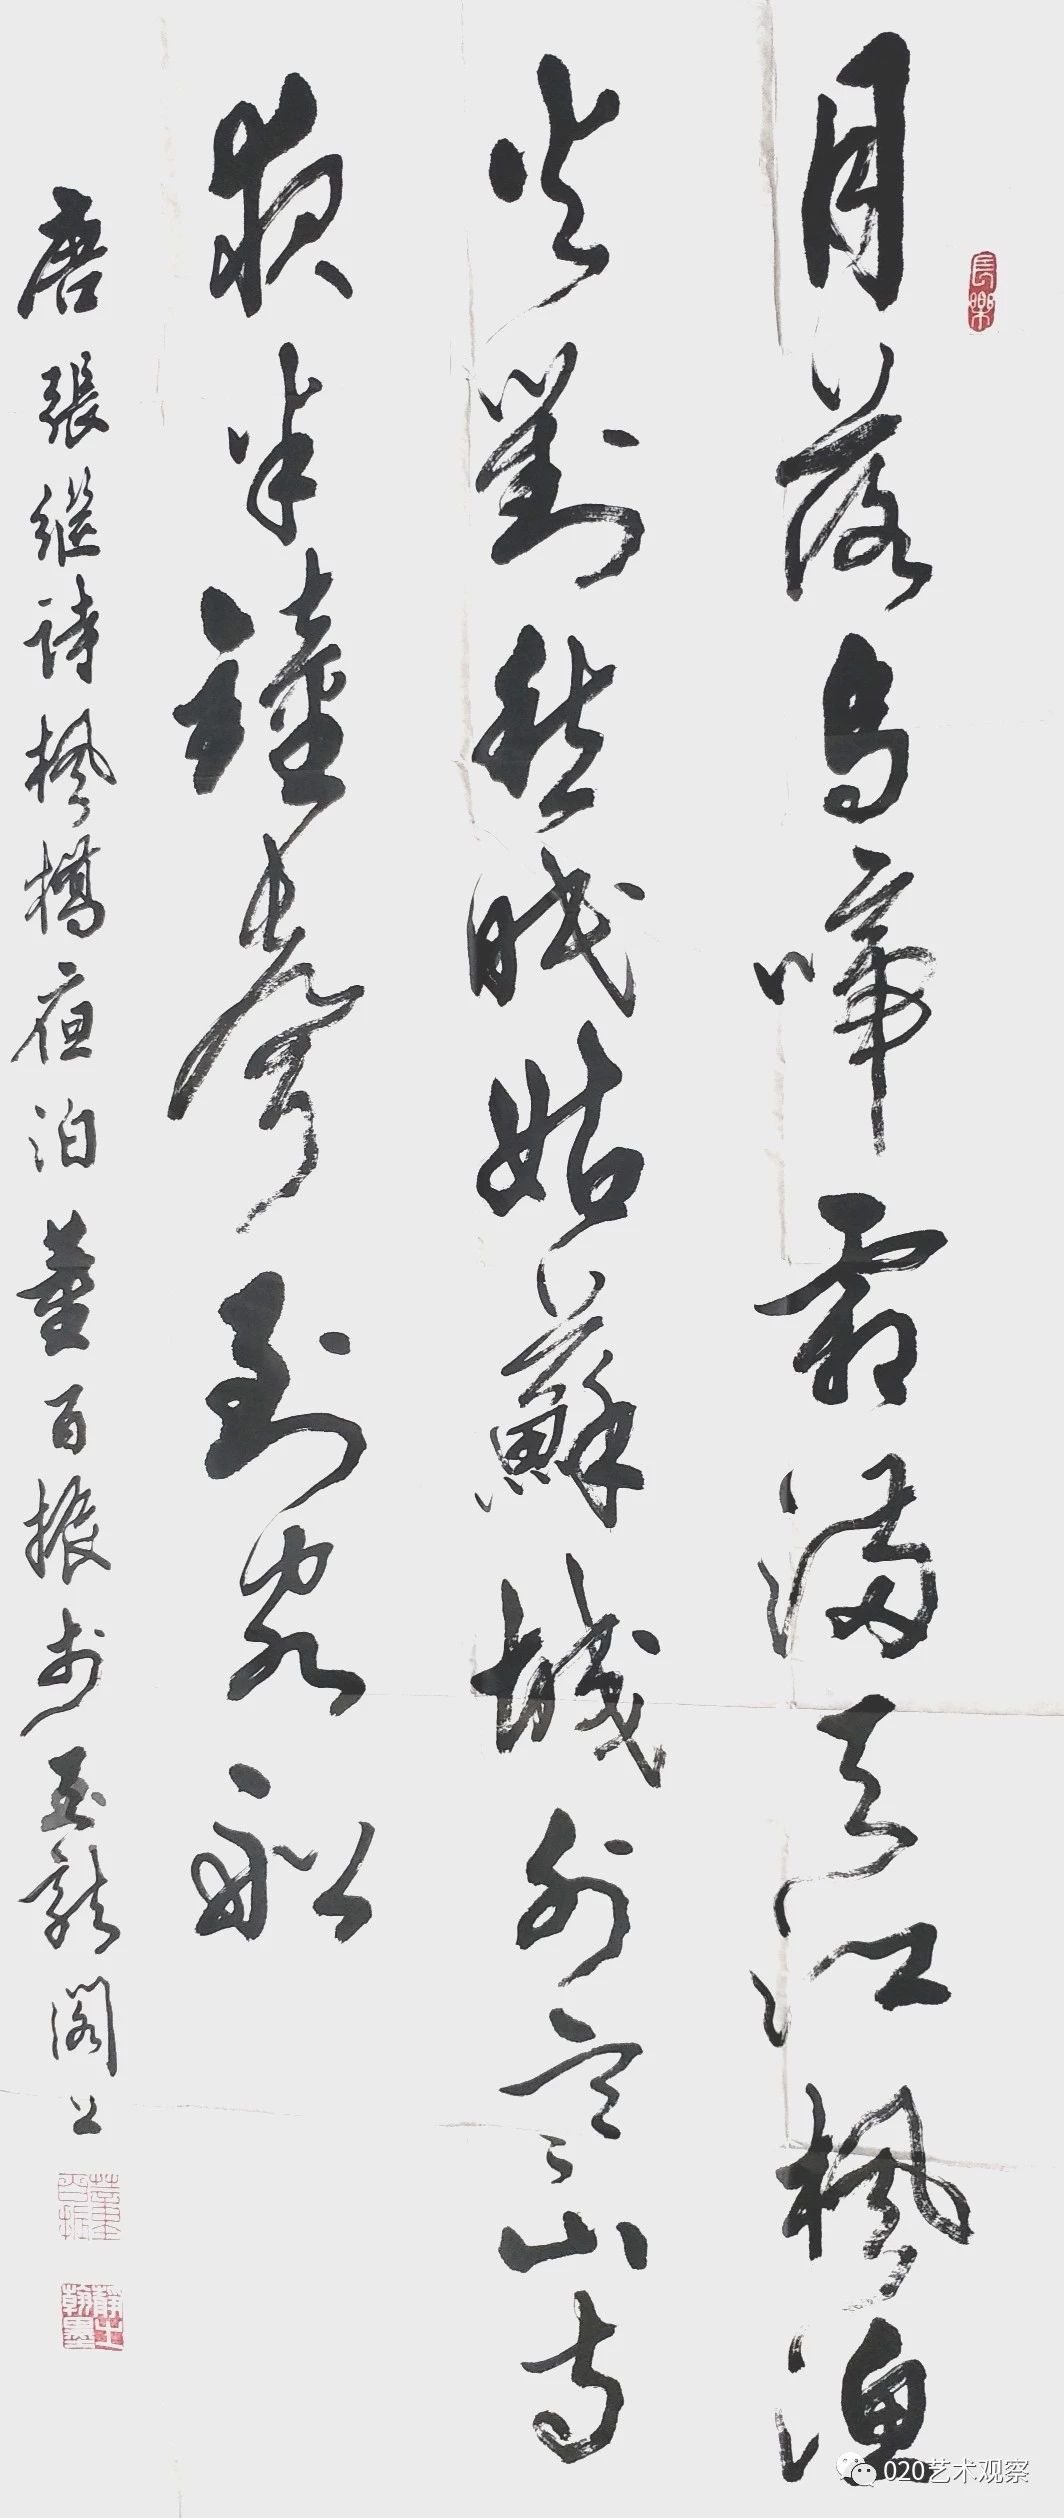 月落烏啼霜满天江楓漁
火對愁眠姑蘇城外寒山寺
夜半鐘聲到客船
唐張继詩楓橋夜泊 董百振书玉龍阁上
長樂
董百振
翰墨
020艺术观察